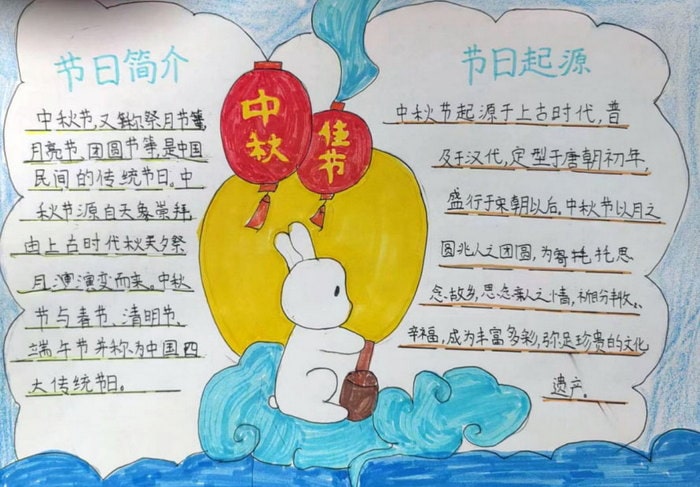 节日简介
中秋节,又称祭月节等,
月亮节、团圆节等,是中国
民间的传统节日。中
秋节源自天象崇拜,
由上古时代秋夕祭
月演演变而来。中秋
节与春节、清明节、
端午节并称为中国四
大传统节日。
中秋
佳节
节日起源
中秋节起源于上古时代,普
及于汉代,定型于唐朝初年,
盛行于宋朝以后。中秋节以月之
圆兆人之团圆,为寄托托思
念故乡,思念亲人之情,祈盼丰收、
幸福,成为丰富多彩,弥足珍贵的文化
遗产。